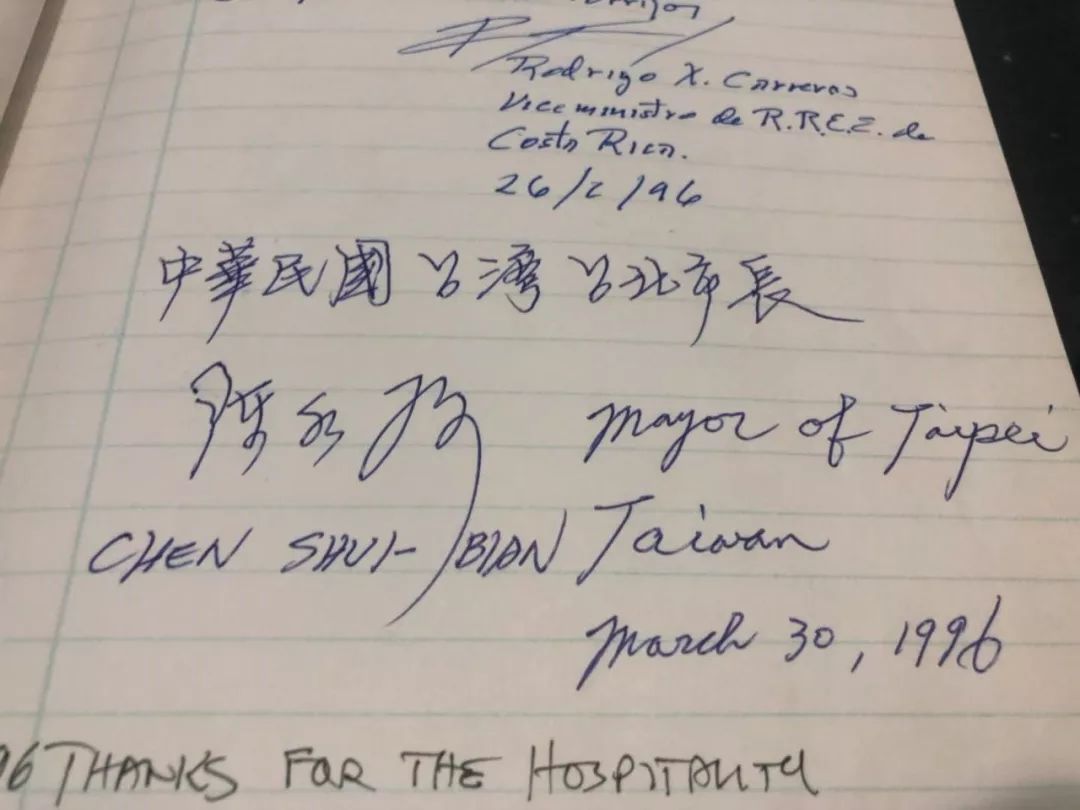 Rodrigo X. Carreras
Viceministro de R.R.E.E. de
Costa Rica.
26/2/96
中華民國台灣台北市長
陳水扁 Mayor of Taipei
CHEN SHUI-BIAN Taiwan
March 30, 1996
96 THANKS FOR THE HOSPITALITY